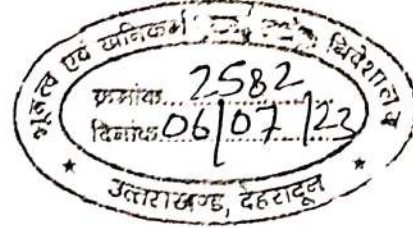 भूतत्व एवं खनिकर्म निदेशालय
क्रमांक..... 2582
दिनांक. 06/07/23
उत्तराखण्ड, देहरादून